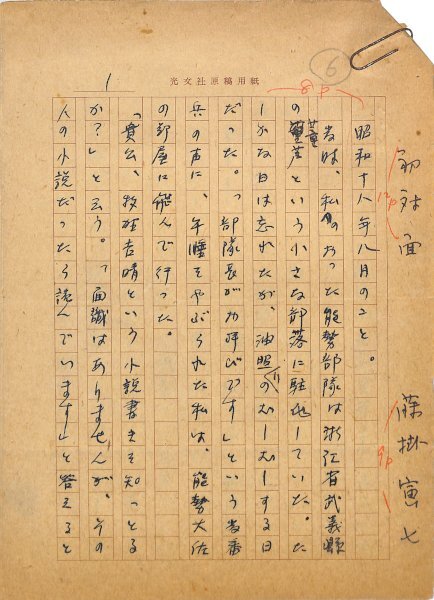 光文社原稿用紙
1
6
8p
初対面
12p
掛寅七
9p
昭和十八年八月のこと。
当時、私のおった能勢部隊は浙江省武義縣
のという小さな部落に駐屯していた。た
しかな日は忘れたが、油照りのむしむしする日
だった。「部隊長がお呼びです」という当番
兵の声に、午睡をやぶられた私は、能勢大佐
の部屋に飛んで行った。
「貴公、牧野吉晴という小説書きを知っとる
か?」と云う。「面識はありませんが、その
人の小説だったら読んでいます」と答えると